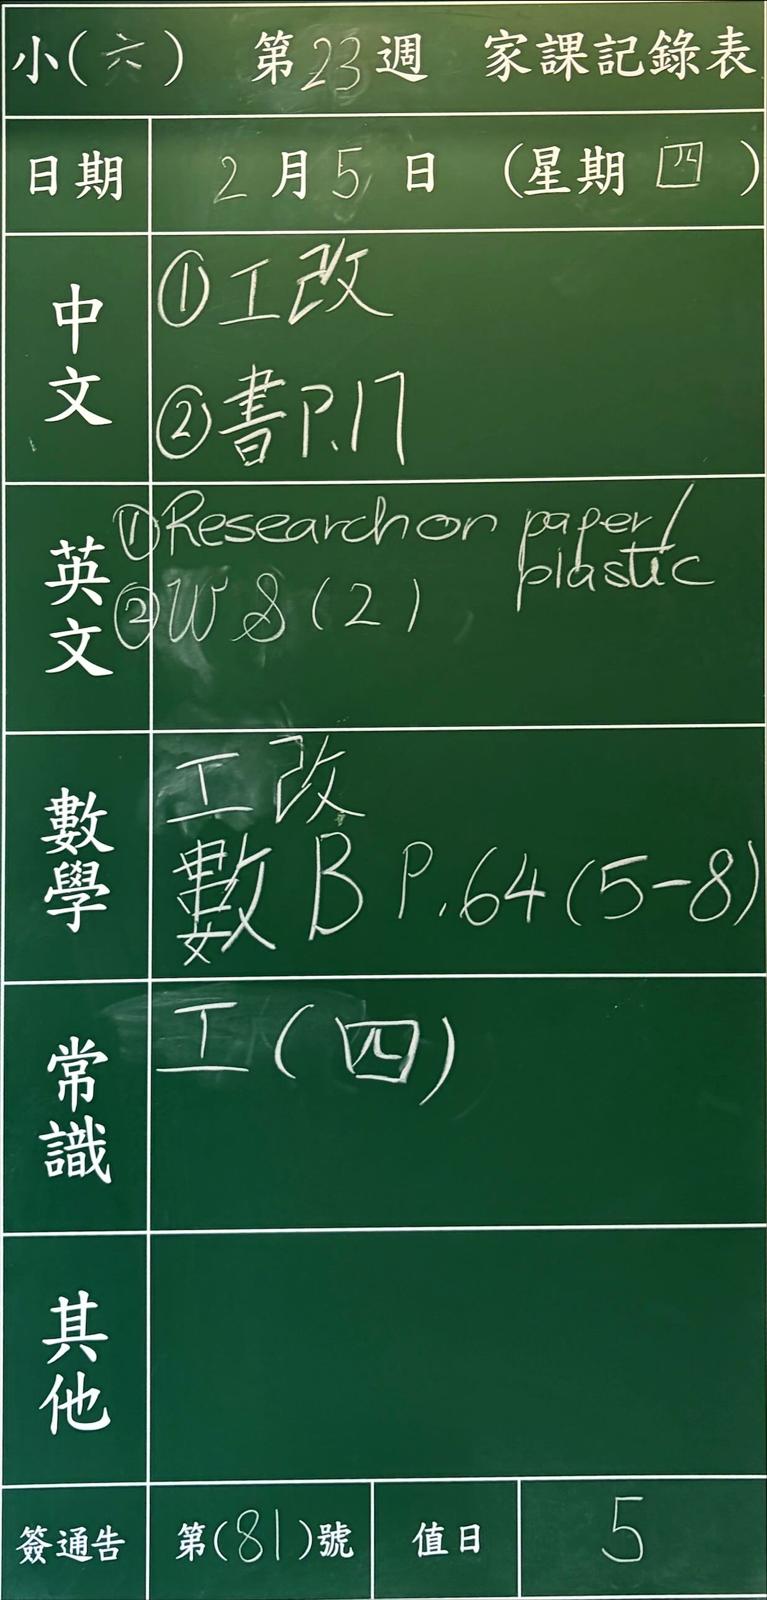 小(六) 第23週 家課記錄表
日期 2月5日 (星期四)
中文
①工改
②書P.17
英文
①Research on paper/
plastic
②WS(2)
數學
工改
數B P.64(5-8)
常識
工(四)
其他
簽通告 第(81)號 值日 5